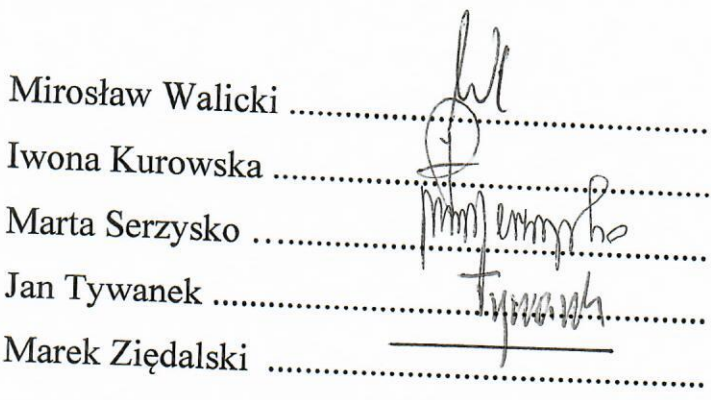 Mirosław Walicki ..............................
Iwona Kurowska ..............................
Marta Serzysko ..............................
Jan Tywanek ..............................
Marek Ziędalski ..............................